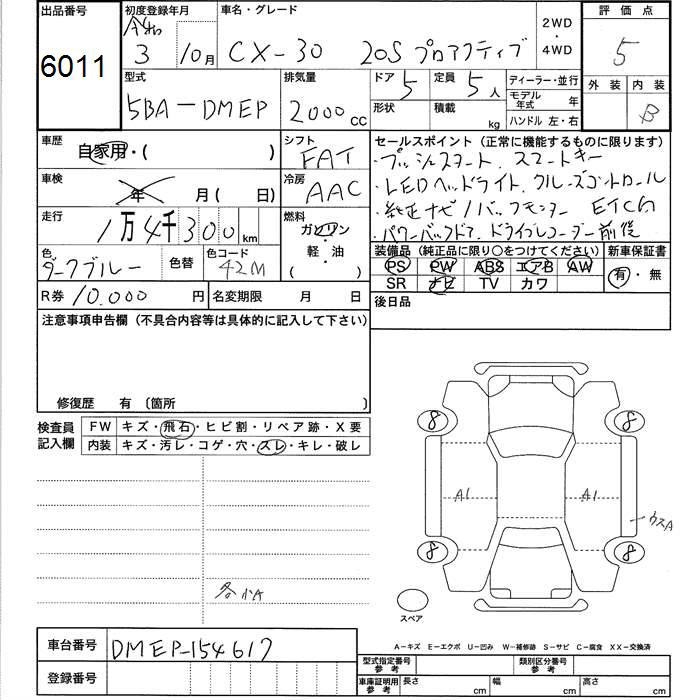 出品番号
6011
初度登録年月
令和
3 10月
車名・グレード
CX-30 20S プロアクティブ
2WD
・
4WD
評価点
5
外装 内装
B
型式
5BA-DMEP
排気量
2000 CC
ドア 5
形状
定員 5 人
積載 kg
ディーラー・並行
モデル年式 年
ハンドル 左・右
車歴
自家用・( )
シフト
FAT
車検
年 月( 日)
冷房
AAC
走行
1万4千300km
燃料
ガソリン
・
軽・油
( )
色
ダークブルー
色替
色コード
42M
R券 10.000 円
名変期限 月 日
セールスポイント(正常に機能するものに限ります)
・プッシュスタート、スマートキー
・LEDヘッドライト、クルーズコントロール
・純正ナビ/バックモニター ETC
・パワーバックドア、ドライブレコーダー前後
装備品(純正品に限り○をつけてください)
PS PW ABS エアB AW
SR ナビ TV カワ
新車保証書
有・無
後日品
注意事項申告欄(不具合内容等は具体的に記入して下さい)
修復歴 有 〔箇所 〕
検査員
記入欄
FW キズ・飛石・ヒビ割・リペア跡・X要
内装 キズ・汚レ・コゲ・穴・スレ・キレ・破レ
8 8
A1 A1
ウスA
8 8
各小A
スペア
A-キズ E-エクボ U-凹み W-補修跡 S-サビ C-腐食 XX-交換済
車台番号 DMEP-154617
登録番号
型式指定番号
参考
類別区分番号
参考
車庫証明用
参考
長さ cm 幅 cm 高さ cm